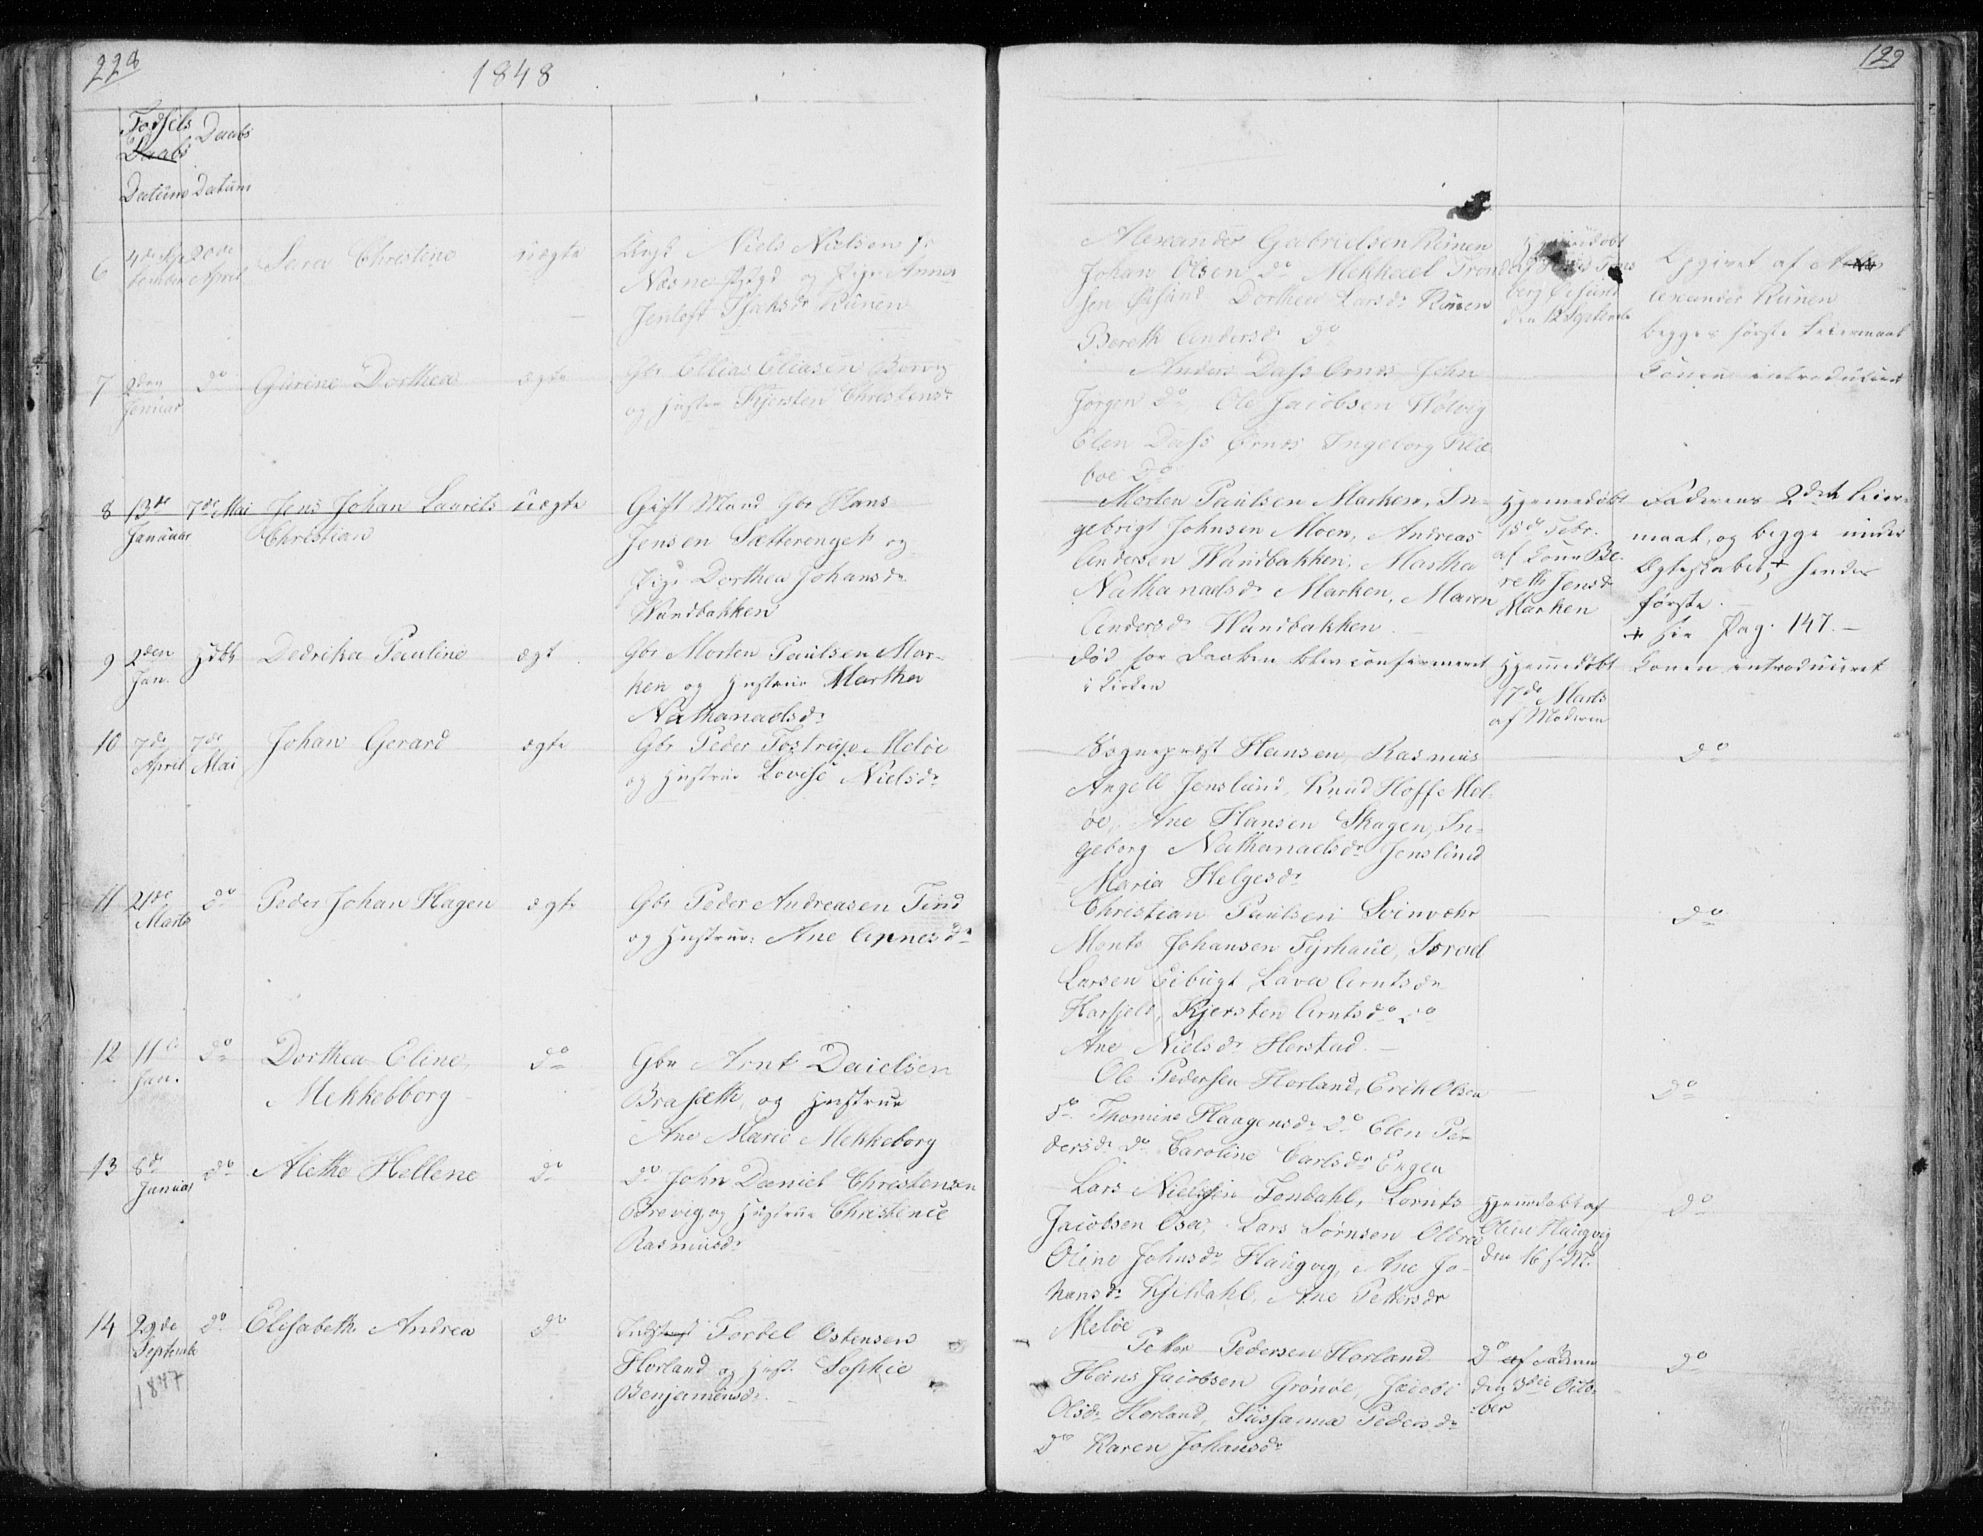 228
1848
129
Fødsels Daabs
Daabs
Datum Datum
6 4de Sep 20de Sara Christine uægte Ungk Niels Nielsen fr
tember April Næsne og Pige Anna
Jenloft Isaksdr Rünen
Alexander Gabrielsen Rünen
Johan Olsen do Mekkael Trond
sen Øesund Dorthea Larsdr Rünen
Bereth Andersdr do
Hjemmedøbt
berg Øesund
den 12 Septembr
Opgivet af
Alexander Rünen
begges første Leiermaal
7 2den do Gurine Dorthea ægte Gbr Ellias Eliasen
Januar og Hustru Kjersten Christensdr
Anders Dass Ørnes John
Jørgen do Ole Jacobsen Holvig
Elen Dass Ørnes Ingeborg Klæ
boe do
Konen introduceret
8 13de 7de Mai Jens Johan Laurits uægte Gift Mand Gbr Hans
Januar Christian Jensen Sætterenget og
Pige Dorthea Johansdr
Wandbakken
Morten Paulsen Marken, In-
gebrigt Johnsen Moen, Andreas
Andersen Wandbakken, Martha
Nathanaelsdr Marken, Maren
Andersdr Wandbakken
Hjemmedøbt
15de Febr.
af Kone Be-
reth Jensdr
Marken
Faderens 2det Leier-
maal, og begge under
Ægteskabet, + hendes
første.
+ see Pag. 147.-
9 2den Hjdbt Dedrika Pauline ægt Gbr Morten Paulsen Mar-
Jan. ken og Hustrue Martha
Nathanaelsdr
død før Daaben blev confirmeret
i Kirken
Hjemmedøbt
17de Marts
af Moderen
Konen introduceret
10 7de 7de Johan Gerard ægte Gbr Peder Tostrup Meløe
April Mai og Hustrue Lovise Nielsdr
Sognepræst Hansen, Rasmus
Angell Jenslund, Knud Hoff Mel-
øe, Ane Hansen Skagen, In-
geborg Nathanaelsdr Jenslund
Maria Helgesdr
do
11 21de do Peder Johan Hagen ægte Gbr Peder Andreasen Tind
Marts og Hustrue: Ane Agnesdr
Christian Paulsen Svinvær
Monts Johansen Tyrhaue, Israel
Larsen Eibugt Lava Arntsdr
Harfjeld, Kjersten Arntsdr do
Ane Nielsdr Herstad
do
12 11te do Dorthea Eline do Gbr Arnt Daielsen
Jan. Mekkebborg Brasæth, og Hustrue
Ane Marie Mekkeborg
Ole Pedersen Horland, Erik Olsen
do Thomine Haagensdr do Elen Pe-
dersdr do Caroline Carlsdr Engen
do
13 6te do Alethe Hellene do do John Daniel Christensen
Januar Brevig og Hustrue Christence
Rasmusdr
Lars Nielssen Tondahl, Lornts
Jacobsen Osen, Lars Sørnsen Oldra
Oline Johnsdr Haugvig, Ane Jo-
hansdr Kjeldahl, Ane Pettersdr
Meløe
Hjemdøbt af
Oline Haugvig
den 16 f. M.
do
14 29de do Elisabeth Andrea do Indst Tordel Ostensen
Septembr Horland og Hust. Sophie
1847 Benjaminsdr
Petter Pedersen Horland
Hans Jacobsen Grønøe, Jacobe
Olsdr Horland, Susanna Pedersdr
do Karen Johansdr
do af Faderen
den 3die Octo-
ber
do